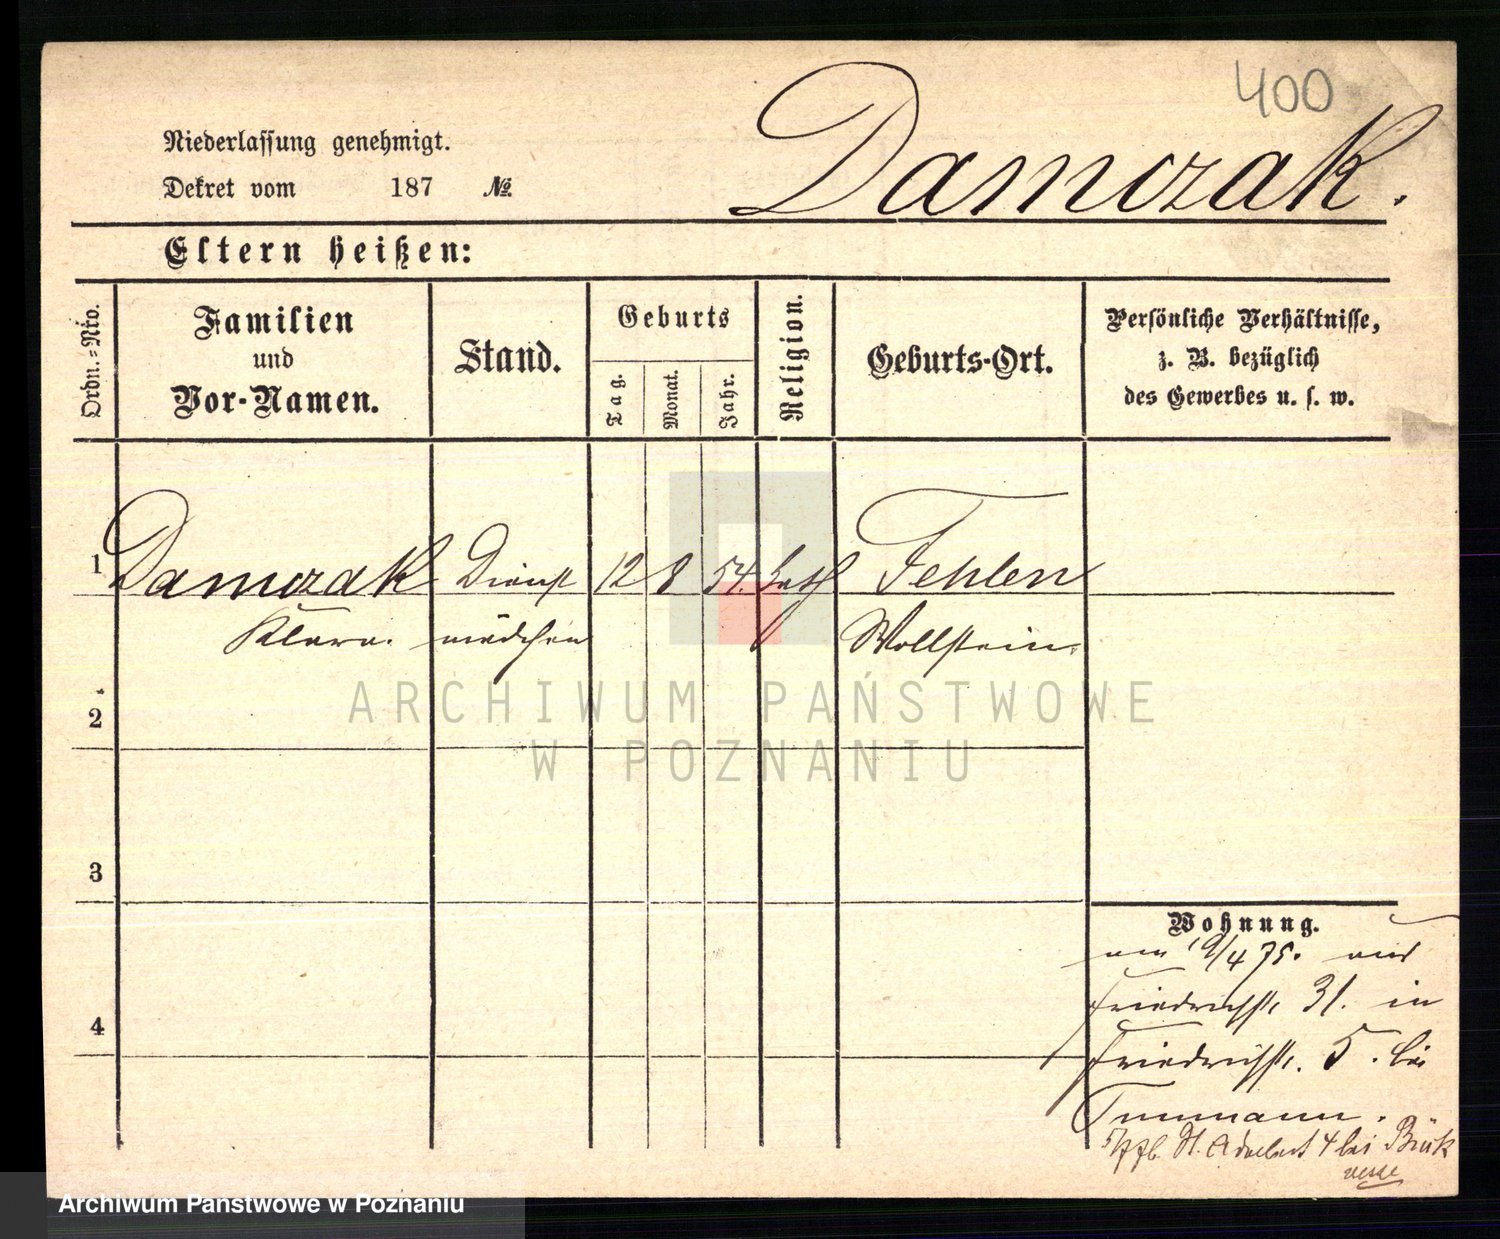 400
Niederlassung genehmigt.
Dekret vom 187 №
Damczak.
Eltern heißen:
Ordn.=Nro.
Familien
und
Vor-Namen.
Stand.
Geburts
Tag.
Monat.
Jahr.
Religion.
Geburts-Ort.
Persönliche Verhältnisse,
z. B. bezüglich
des Gewerbes u. s. w.
1 Damczak Dienst 12 8 54. kath Fehlen
Klara. mädchen Wollstein.
2
3
4
ARCHIWUM PAŃSTWOWE
W POZNANIU
Wohnung.
am 19/4 75. aus
Friedrichstr. 31. in
Friedrichstr. 5. bei
St. Adalbert 4 bei
Archiwum Państwowe w Poznaniu